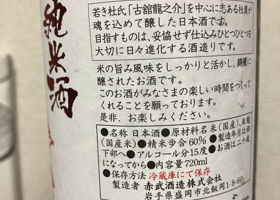 純米酒
若き杜氏「古舘龍之介」を中心に志ある社員が
魂を込めて醸した日本酒です。
目指すものは、妥協せず仕込みひとつひとつを
大切に日々進化する酒造りです。
米の旨み風味をしっかりと活かし、綺麗に
醸されたお酒です。
このお酒がみなさまの楽しい時間をつくって
くれることを願っております。
是非、お楽しみください。
●名称 日本酒 ●原材料名 米(国産)、米麹
(国産米) ●精米歩合60% ●製造年月は枠
下部へ ●アルコール分15度 お酒は二十歳
から ●内容量720ml
●保存方法 冷蔵庫にて保存
製造者 赤武酒造株式会社
岩手県盛岡市北飯岡1-8-60